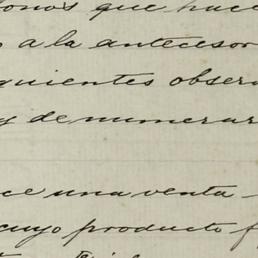 que hace
a la antecesor
siguientes obser
y de numerar
ce una venta
cuyo producto f